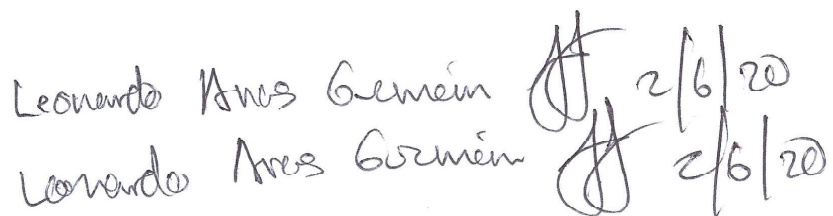 Leonardo Ares Guzmán 2/6/20
Leonardo Ares Guzmán 2/6/20